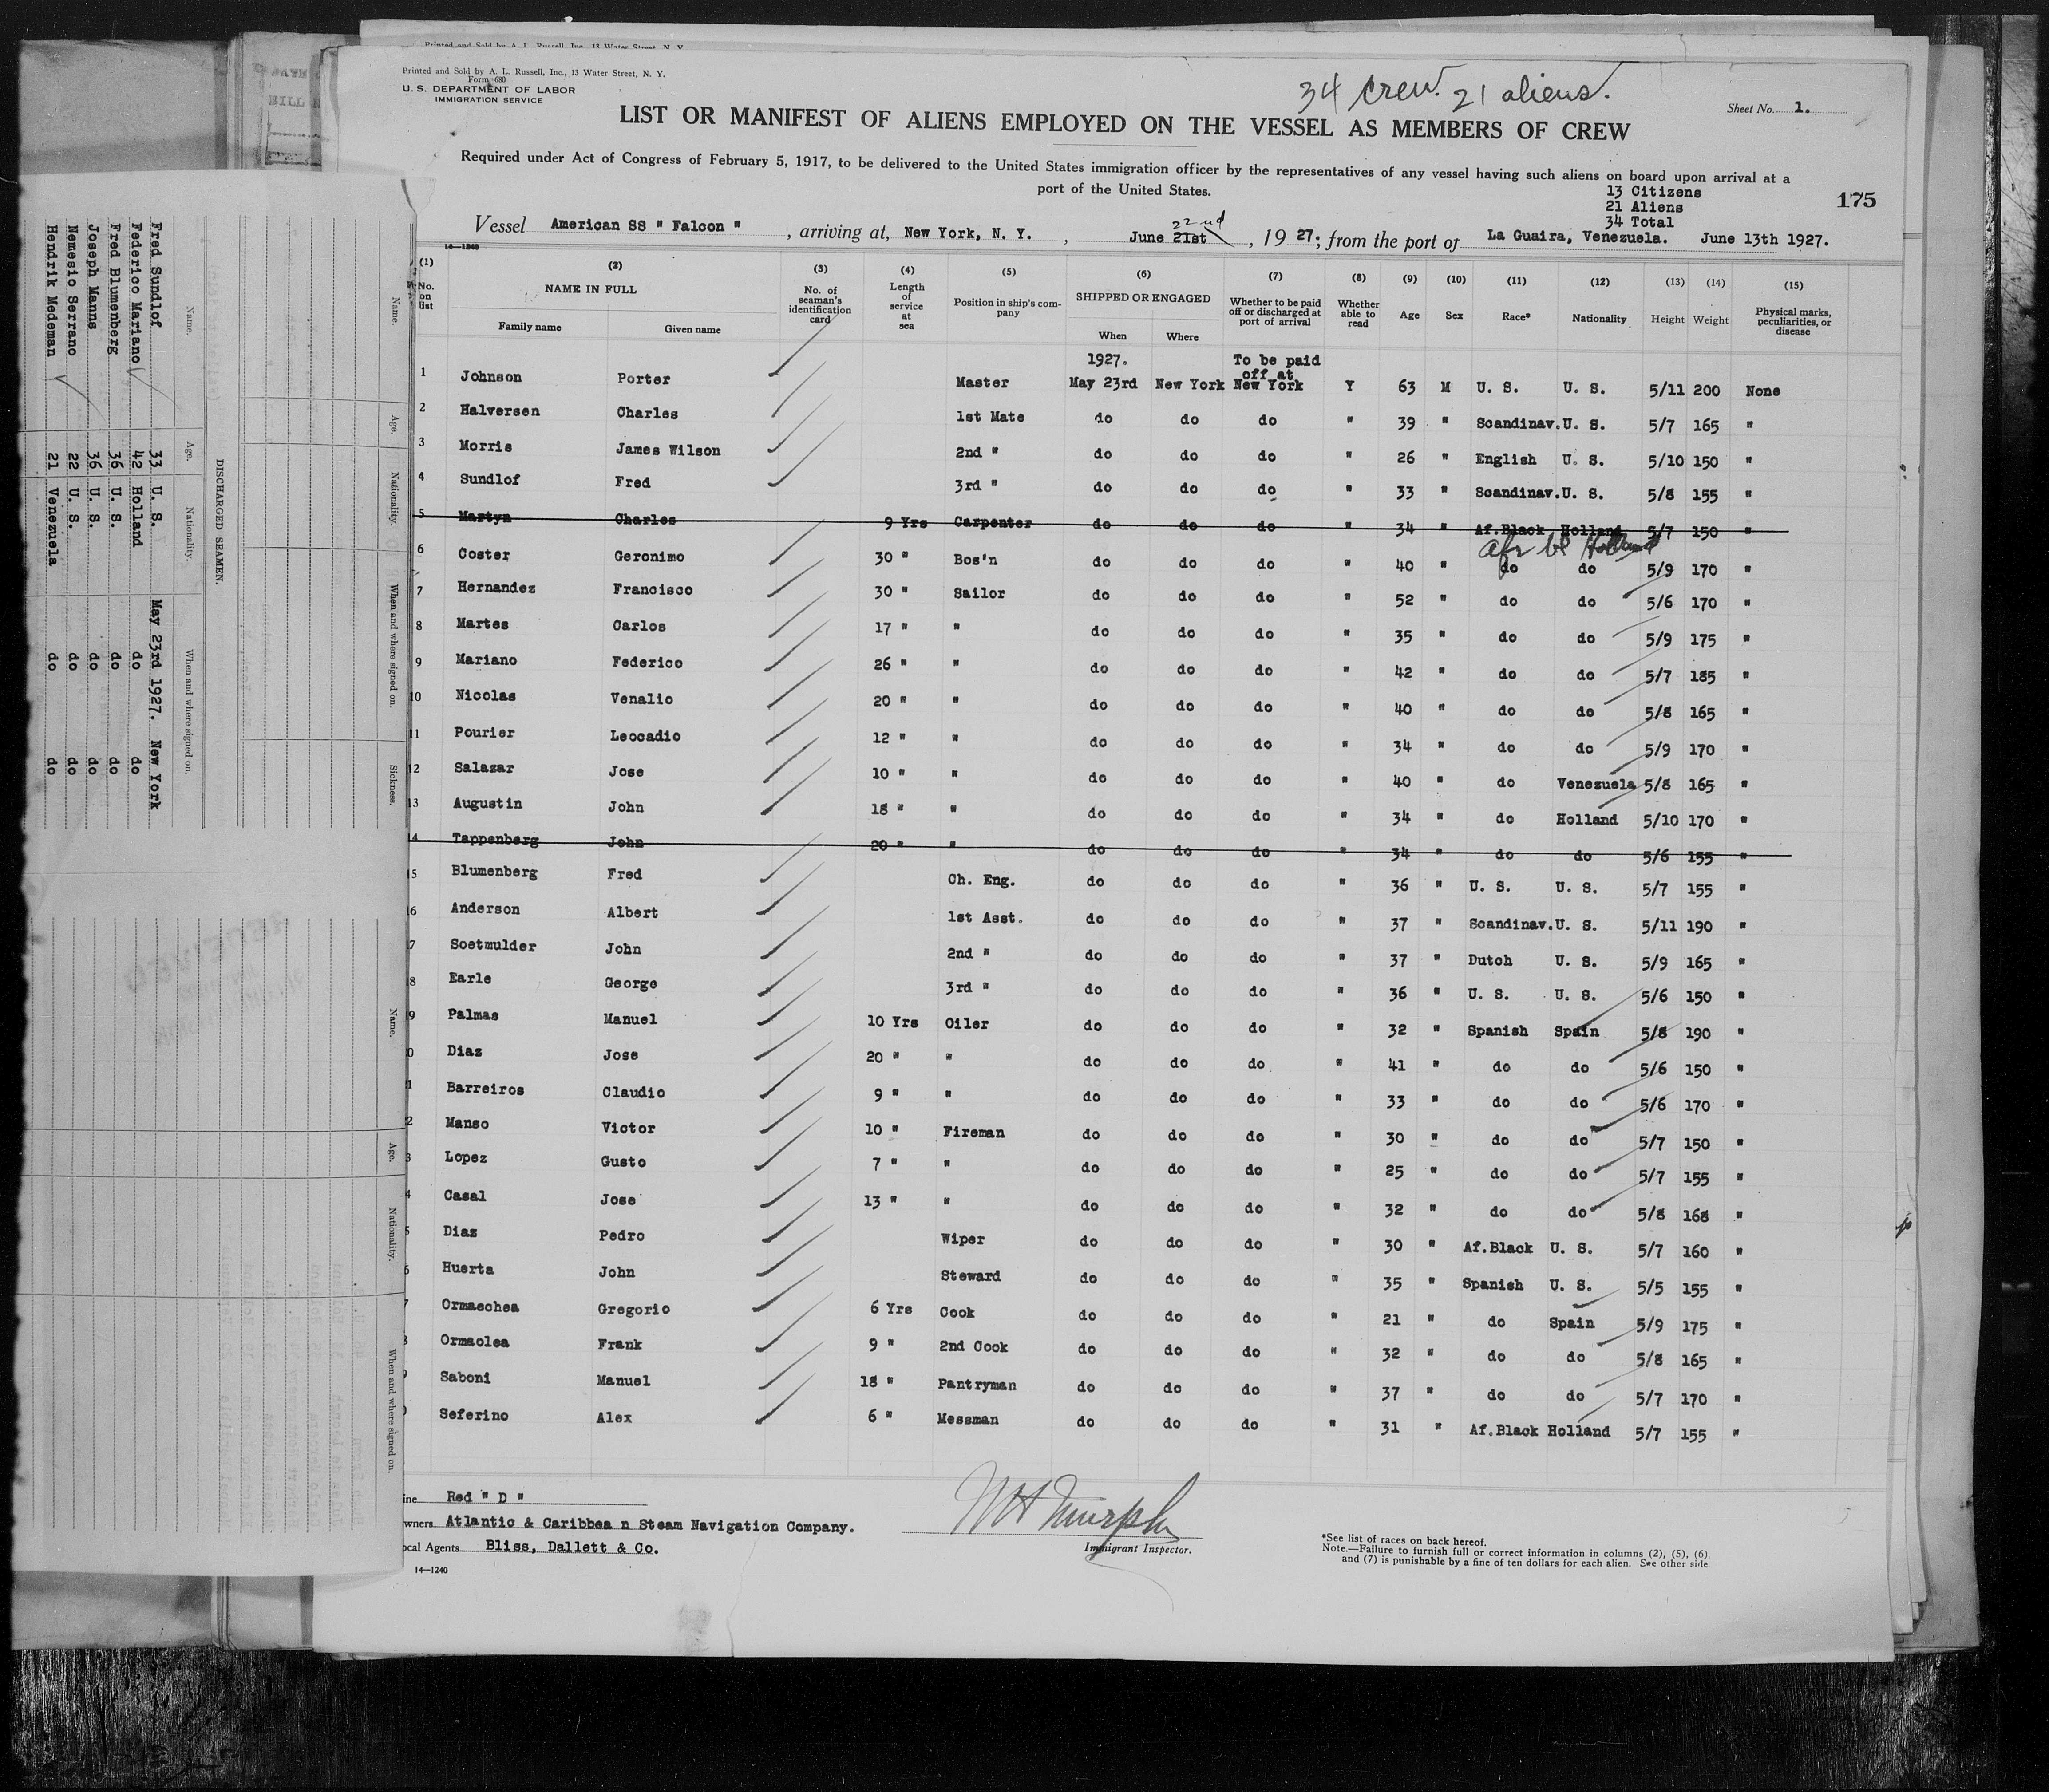 Printed and Sold by A. L. Russell, Inc., 13 Water Street, N. Y.
Printed and Sold by A. L. Russell, Inc., 13 Water Street, N. Y.
Form 680
U. S. DEPARTMENT OF LABOR
IMMIGRATION SERVICE
34 crew. 21 aliens.
Sheet No. 1.
LIST OR MANIFEST OF ALIENS EMPLOYED ON THE VESSEL AS MEMBERS OF CREW
Required under Act of Congress of February 5, 1917, to be delivered to the United States immigration officer by the representatives of any vessel having such aliens on board upon arrival at a
port of the United States.
13 Citizens
21 Aliens
34 Total
175
22nd
Vessel American SS " Falcon " , arriving at, New York, N. Y. , June 21st , 19 27; from the port of La Guaira, Venezuela. June 13th 1927.
14—1240
(1) (2) (3) (4) (5) (6) (7) (8) (9) (10) (11) (12) (13) (14) (15)
No. on list NAME IN FULL Family name Given name No. of seaman's identification card Length of service at sea Position in ship's company SHIPPED OR ENGAGED When Where Whether to be paid off or discharged at port of arrival Whether able to read Age Sex Race* Nationality Height Weight Physical marks, peculiarities, or disease
1927. To be paid
off at
1 Johnson Porter Master May 23rd New York New York Y 63 M U. S. U. S. 5/11 200 None
2 Halversen Charles 1st Mate do do do " 39 " Scandinav. U. S. 5/7 165 "
3 Morris James Wilson 2nd " do do do " 26 " English U. S. 5/10 150 "
4 Sundlof Fred 3rd " do do do " 33 " Scandinav. U. S. 5/8 155 "
5 Martyn Charles 9 Yrs Carpenter do do do " 34 " Af.Black Holland 5/7 150 "
afr bl Holland
6 Coster Geronimo 30 " Bos'n do do do " 40 " do do 5/9 170 "
7 Hernandez Francisco 30 " Sailor do do do " 52 " do do 5/6 170 "
8 Martes Carlos 17 " " do do do " 35 " do do 5/9 175 "
9 Mariano Federico 26 " " do do do " 42 " do do 5/7 185 "
10 Nicolas Venalio 20 " " do do do " 40 " do do 5/8 165 "
11 Pourier Leocadio 12 " " do do do " 34 " do do 5/9 170 "
12 Salazar Jose 10 " " do do do " 40 " do Venezuela 5/8 165 "
13 Augustin John 18 " " do do do " 34 " do Holland 5/10 170 "
14 Tappenberg John 20 " " do do do " 34 " do do 5/6 155 "
5 Blumenberg Fred Ch. Eng. do do do " 36 " U. S. U. S. 5/7 155 "
6 Anderson Albert 1st Asst. do do do " 37 " Scandinav. U. S. 5/11 190 "
7 Soetmulder John 2nd " do do do " 37 " Dutch U. S. 5/9 165 "
8 Earle George 3rd " do do do " 36 " U. S. U. S. 5/6 150 "
9 Palmas Manuel 10 Yrs Oiler do do do " 32 " Spanish Spain 5/8 190 "
0 Diaz Jose 20 " " do do do " 41 " do do 5/6 150 "
1 Barreiros Claudio 9 " " do do do " 33 " do do 5/6 170 "
2 Manso Victor 10 " Fireman do do do " 30 " do do 5/7 150 "
3 Lopez Gusto 7 " " do do do " 25 " do do 5/7 155 "
4 Casal Jose 13 " " do do do " 32 " do do 5/8 168 "
5 Diaz Pedro Wiper do do do " 30 " Af.Black U. S. 5/7 160 "
6 Huerta John Steward do do do " 35 " Spanish U. S. 5/5 155 "
7 Ormaechea Gregorio 6 Yrs Cook do do do " 21 " do Spain 5/9 175 "
8 Ormaolea Frank 9 " 2nd Cook do do do " 32 " do do 5/8 165 "
Saboni Manuel 18 " Pantryman do do do " 37 " do do 5/7 170 "
Seferino Alex 6 " Messman do do do " 31 " Af.Black Holland 5/7 155 "
ine Red " D "
wners Atlantic & Caribbea n Steam Navigation Company.
ocal Agents Bliss, Dallett & Co.
14—1240
W H Murphy
Immigrant Inspector.
*See list of races on back hereof.
Note.—Failure to furnish full or correct information in columns (2), (5), (6)
and (7) is punishable by a fine of ten dollars for each alien. See other side
Name. Age. Nationality. When and where signed on. Sickness.
DISCHARGED SEAMEN.
Name. Age. Nationality. When and where signed on.
Fred Sundlof 33 U. S. May 23rd 1927. New York
Federico Mariano 42 Holland do do
Fred Blumenberg 36 U. S. do do
Joseph Manns 36 U. S. do do
Nemesio Serrano 22 U. S. do do
Hendrik Medeman 21 Venezuela do do
Name. Age. Nationality. When and where signed on.